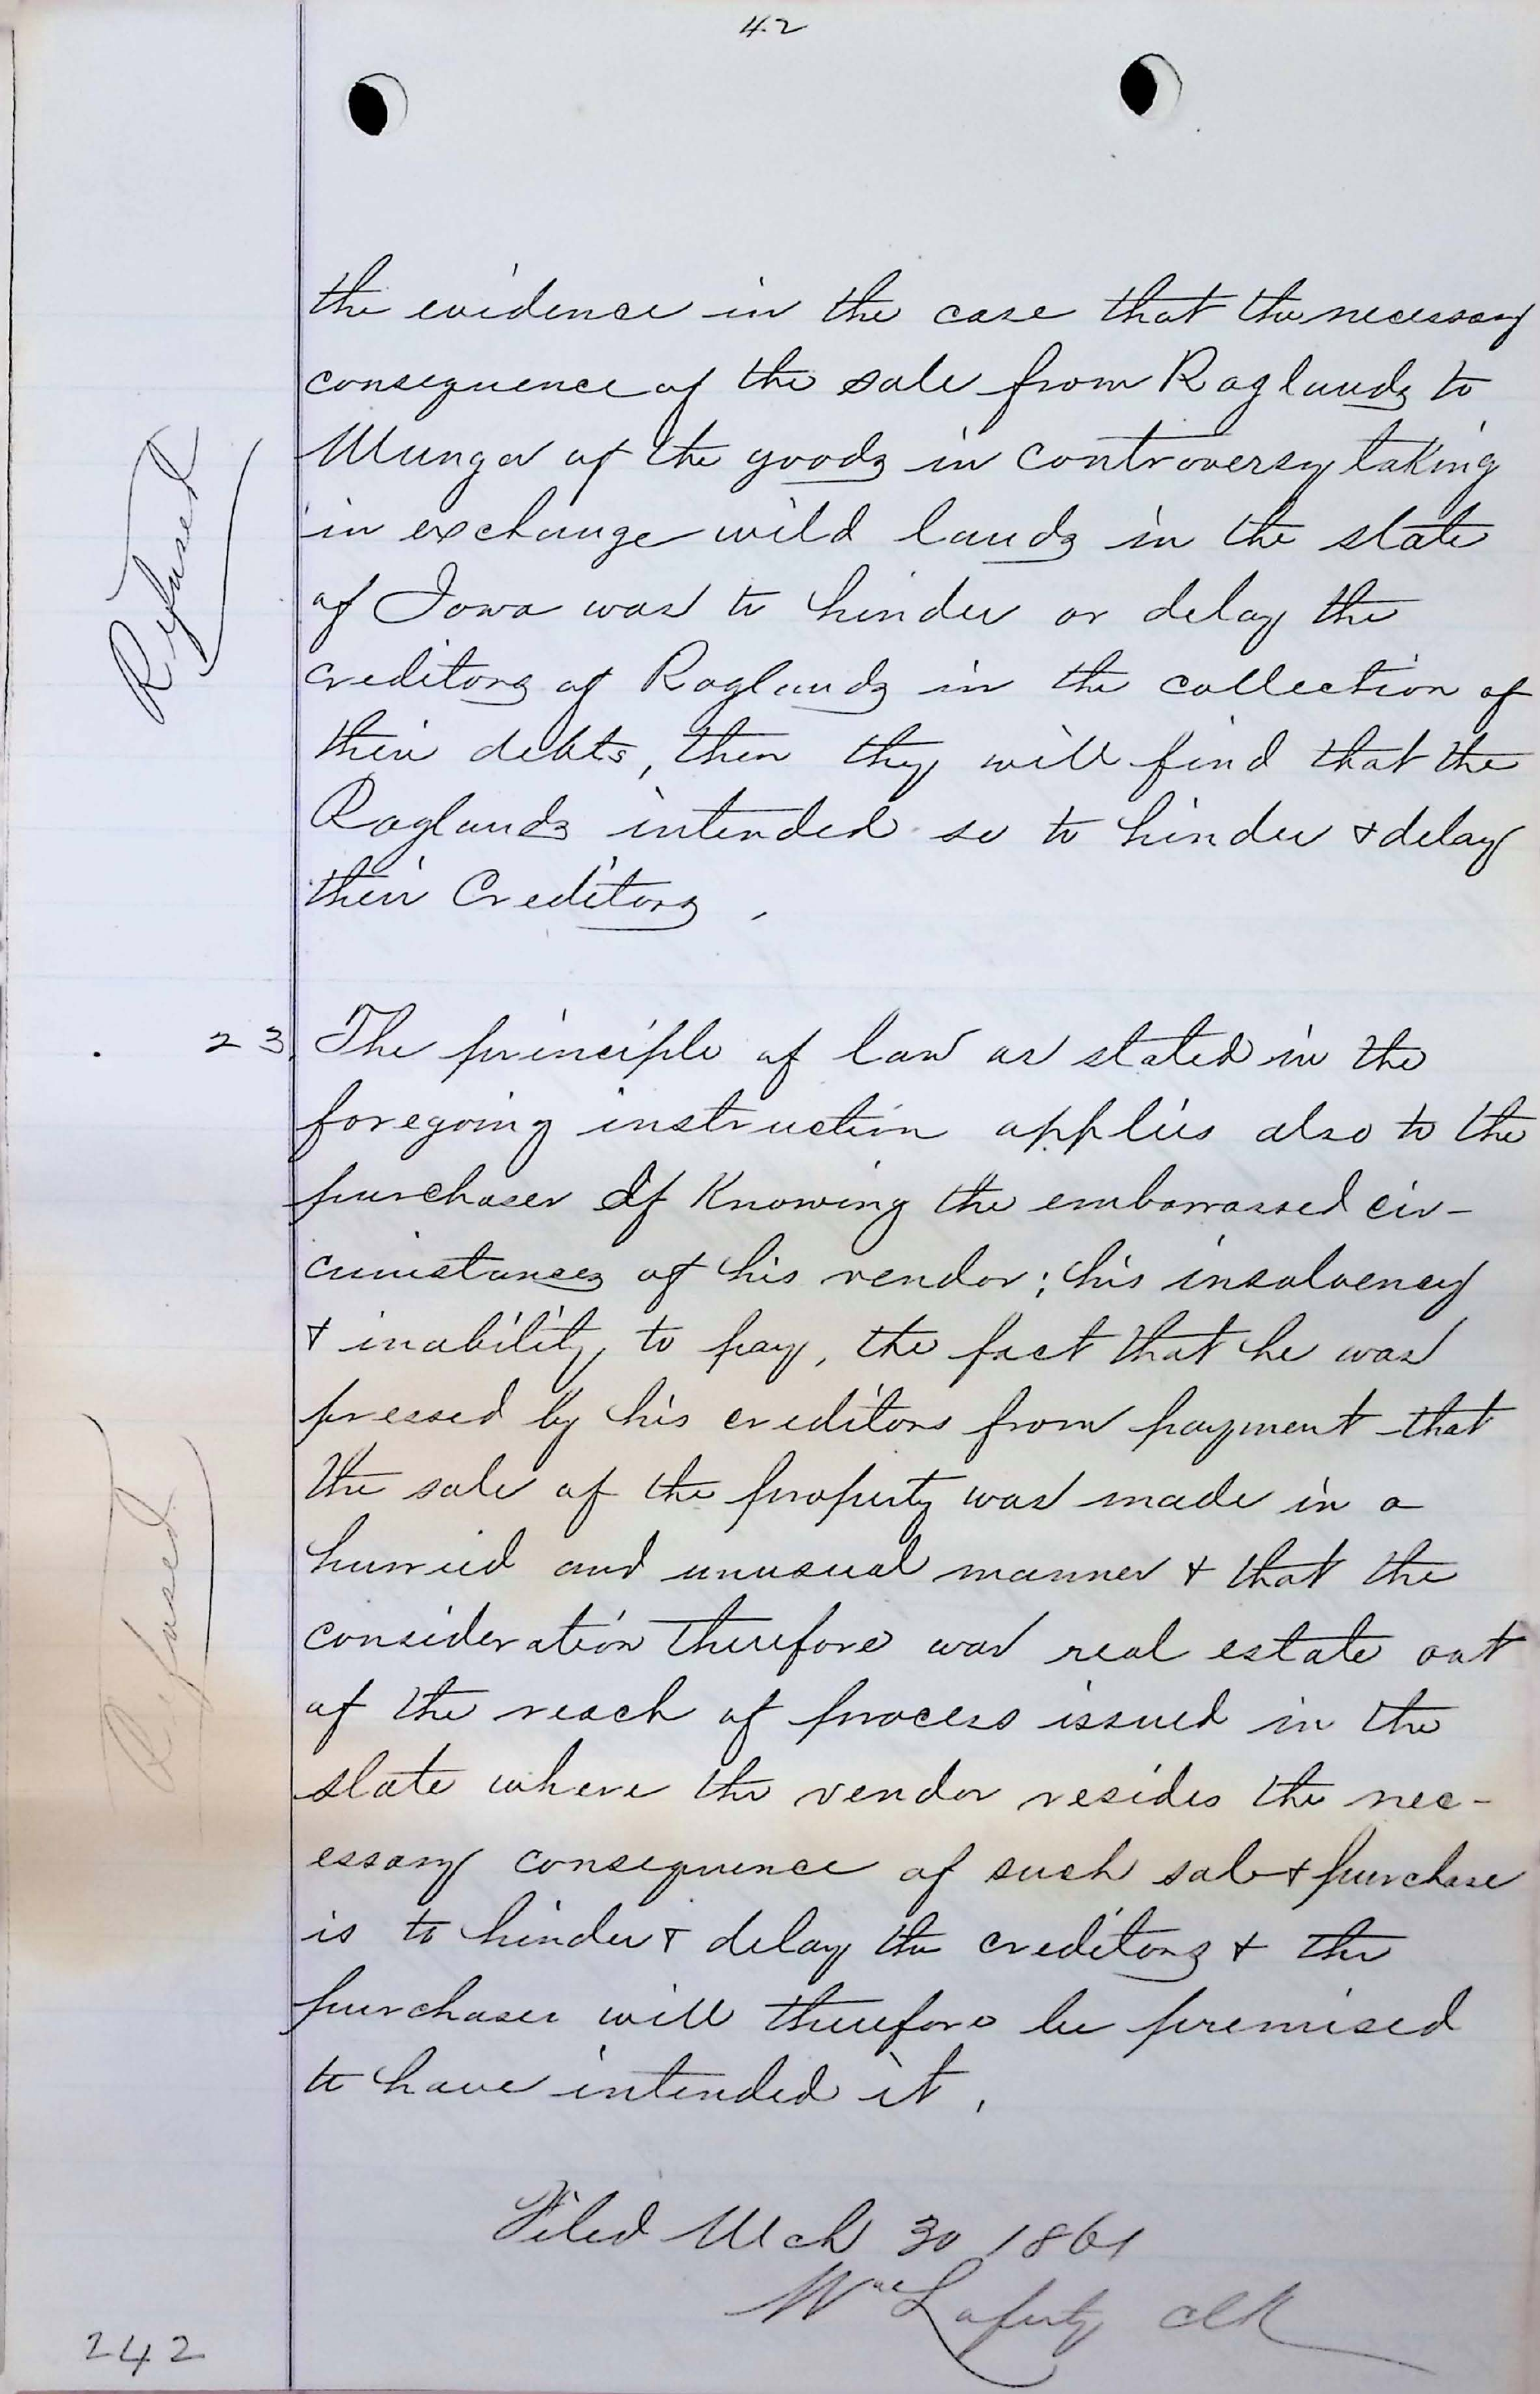 42
the evidence in the case that the necessary
consequence of the sale from Raglands to
Munger of the goods in controversy taking
in exchange wild lands in the state
of Iowa was to hinder or delay the
creditors of Raglands in the collection of
their debts, then they will find that the
Raglands intended so to hinder & delay
their Creditors.
Refused
23. The principle of law as stated in the
foregoing instruction applies also to the
purchaser If Knowing the embarrassed cir-
cumstances of his vendor; his insolvency
& inability to pay, the fact that he was
pressed by his creditors from payment that
the sale of the property was made in a
hurried and unusual manner & that the
consideration therefore was real estate out
of the reach of process issued in the
state where the vendor resides the nec-
essary consequence of such sale & purchase
is to hinder & delay the creditors & the
purchaser will therefore be premised
to have intended it.
Refused
Filed Mch 30 1861
Wm Laferty Clk
242